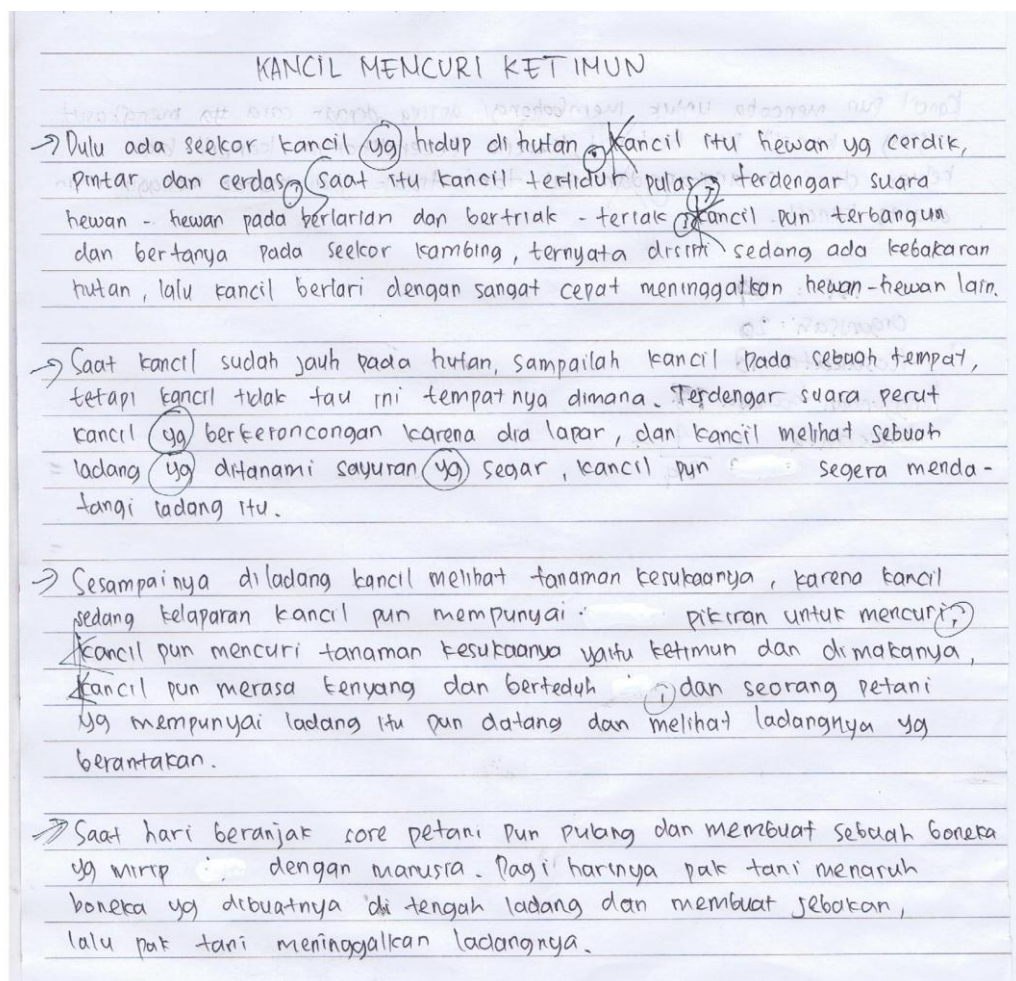 KANCIL MENCURI KETIMUN
Dulu ada seekor kancil yg hidup di hutan. Kancil itu hewan yg cerdik,
pintar dan cerdas, saat itu kancil tertidur pulas, terdengar suara
hewan - hewan pada berlarian dan bertriak - teriak, kancil pun terbangun
dan bertanya pada seekor kambing, ternyata disini sedang ada kebakaran
hutan, lalu kancil berlari dengan sangat cepat meninggalkan hewan-hewan lain.
Saat kancil sudah jauh pada hutan, sampailah kancil pada sebuah tempat,
tetapi kancil tidak tau ini tempatnya dimana. Terdengar suara perut
kancil yg berkeroncongan karena dia lapar, dan kancil melihat sebuah
ladang yg ditanami sayuran yg segar, kancil pun segera menda-
tangi ladang itu.
Sesampainya diladang kancil melihat tanaman kesukaanya, karena kancil
sedang kelaparan kancil pun mempunyai pikiran untuk mencuri,
kancil pun mencuri tanaman kesukaanya yaitu ketimun dan dimakanya,
kancil pun merasa kenyang dan berteduh, dan seorang petani
yg mempunyai ladang itu pun datang dan melihat ladangnya yg
berantakan.
Saat hari beranjak sore petani pun pulang dan membuat sebuah boneka
yg mirip dengan manusia. Pagi harinya pak tani menaruh
boneka yg dibuatnya di tengah ladang dan membuat jebakan,
lalu pak tani meninggalkan ladangnya.